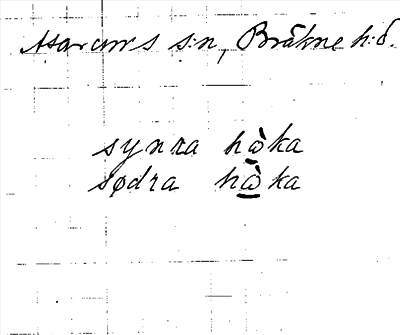 Asarums s:n, Bräkne h:d.
synra hò̲ka
sødra hà̲ka